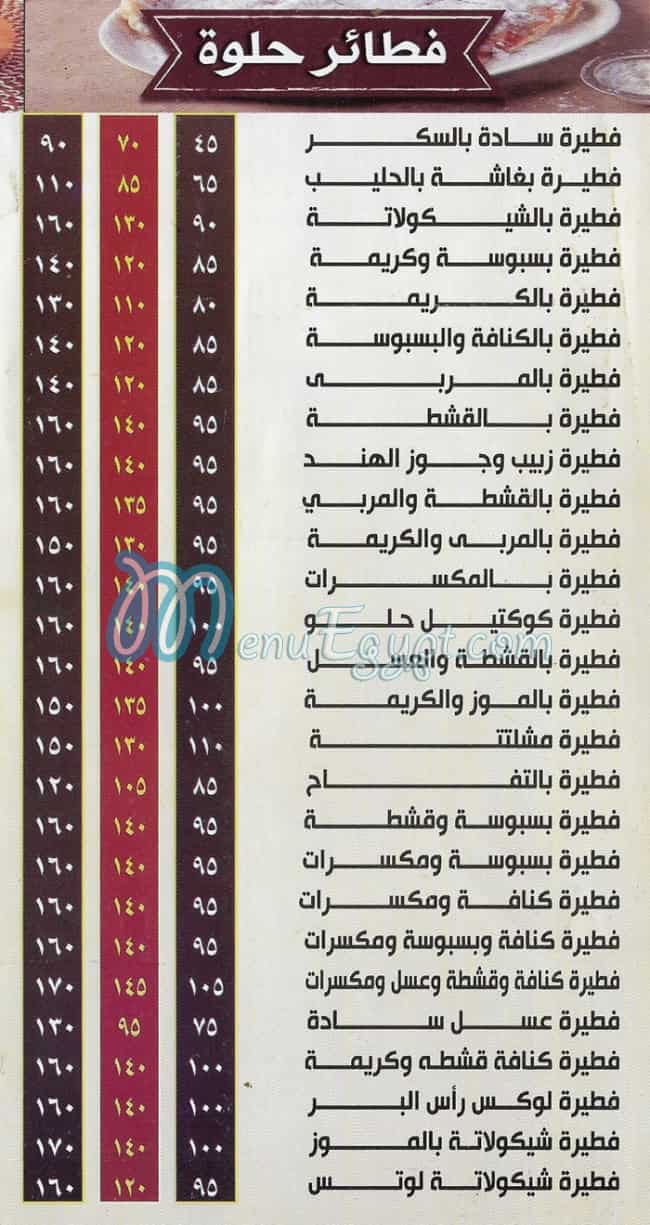 فطائر حلوة
فطيرة سادة بالسكر ٤٥ ٧٠ ٩٠
فطيرة بغاشة بالحليب ٦٥ ٨٥ ١١٠
فطيرة بالشيكولاتة ٩٠ ١٣٠ ١٦٠
فطيرة بسبوسة وكريمة ٨٥ ١٢٠ ١٤٠
فطيرة بالكريمة ٨٠ ١١٠ ١٣٠
فطيرة بالكنافة والبسبوسة ٨٥ ١٢٠ ١٤٠
فطيرة بالمربى ٨٥ ١٢٠ ١٤٠
فطيرة بالقشطة ٩٥ ١٤٠ ١٦٠
فطيرة زبيب وجوز الهند ٩٥ ١٤٠ ١٦٠
فطيرة بالقشطة والمربي ٩٥ ١٣٥ ١٦٠
فطيرة بالمربى والكريمة ٩٥ ١٣٠ ١٥٠
فطيرة بالمكسرات ٩٥ ١٤٠ ١٦٠
فطيرة كوكتيل حلو ١٠٠ ١٤٠ ١٦٠
MenuEgypt.com
فطيرة بالقشطة والعسل ٩٥ ١٤٠ ١٦٠
فطيرة بالموز والكريمة ١٠٠ ١٣٥ ١٥٠
فطيرة مشلتتة ١١٠ ١٣٠ ١٥٠
فطيرة بالتفاح ٨٥ ١٠٥ ١٢٠
فطيرة بسبوسة وقشطة ٩٥ ١٤٠ ١٦٠
فطيرة بسبوسة ومكسرات ٩٥ ١٤٠ ١٦٠
فطيرة كنافة ومكسرات ٩٥ ١٤٠ ١٦٠
فطيرة كنافة وبسبوسة ومكسرات ٩٥ ١٤٠ ١٦٠
فطيرة كنافة وقشطة وعسل ومكسرات ١٠٥ ١٤٥ ١٧٠
فطيرة عسل سادة ٧٥ ٩٥ ١٣٠
فطيرة كنافة قشطه وكريمة ١٠٠ ١٤٠ ١٦٠
فطيرة لوكس رأس البر ١٠٠ ١٤٠ ١٦٠
فطيرة شيكولاتة بالموز ١٠٠ ١٤٠ ١٧٠
فطيرة شيكولاتة لوتس ٩٥ ١٢٠ ١٦٠